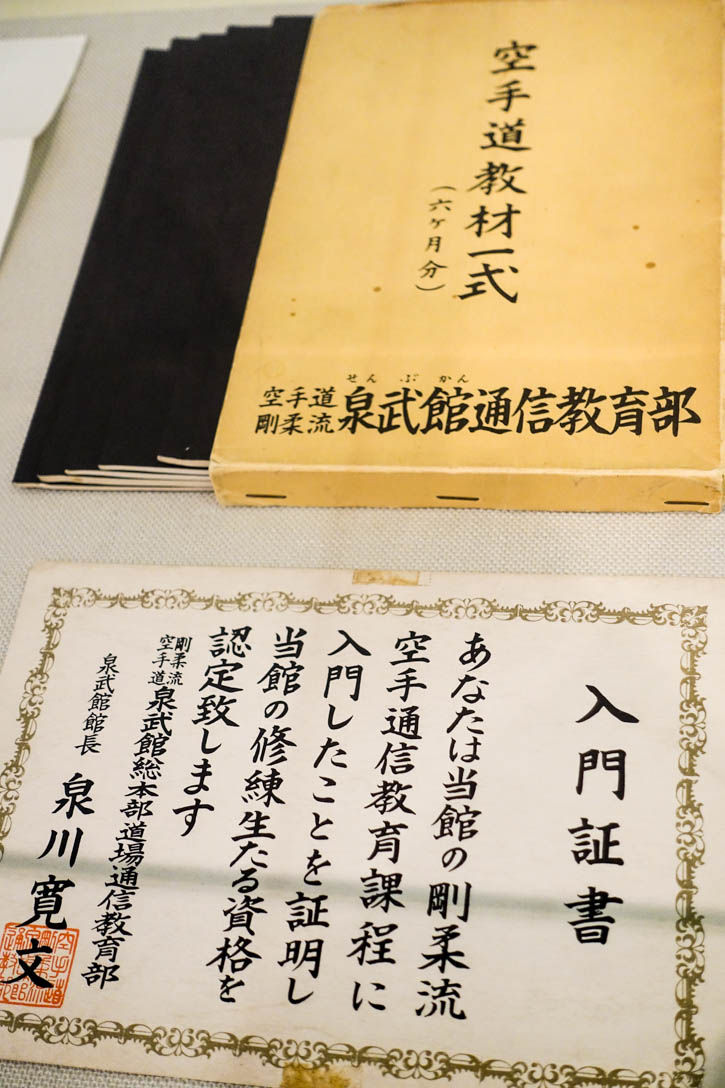 空手道教材一式
(六ヶ月分)
せんぶかん
空手道
剛柔流
泉武館通信教育部
入門証書
あなたは当館の剛柔流
空手通信教育課程に
入門したことを証明し
当館の修練生たる資格を
認定致します
剛柔流
空手道
泉武館総本部道場通信教育部
泉武館館長 泉川寛文